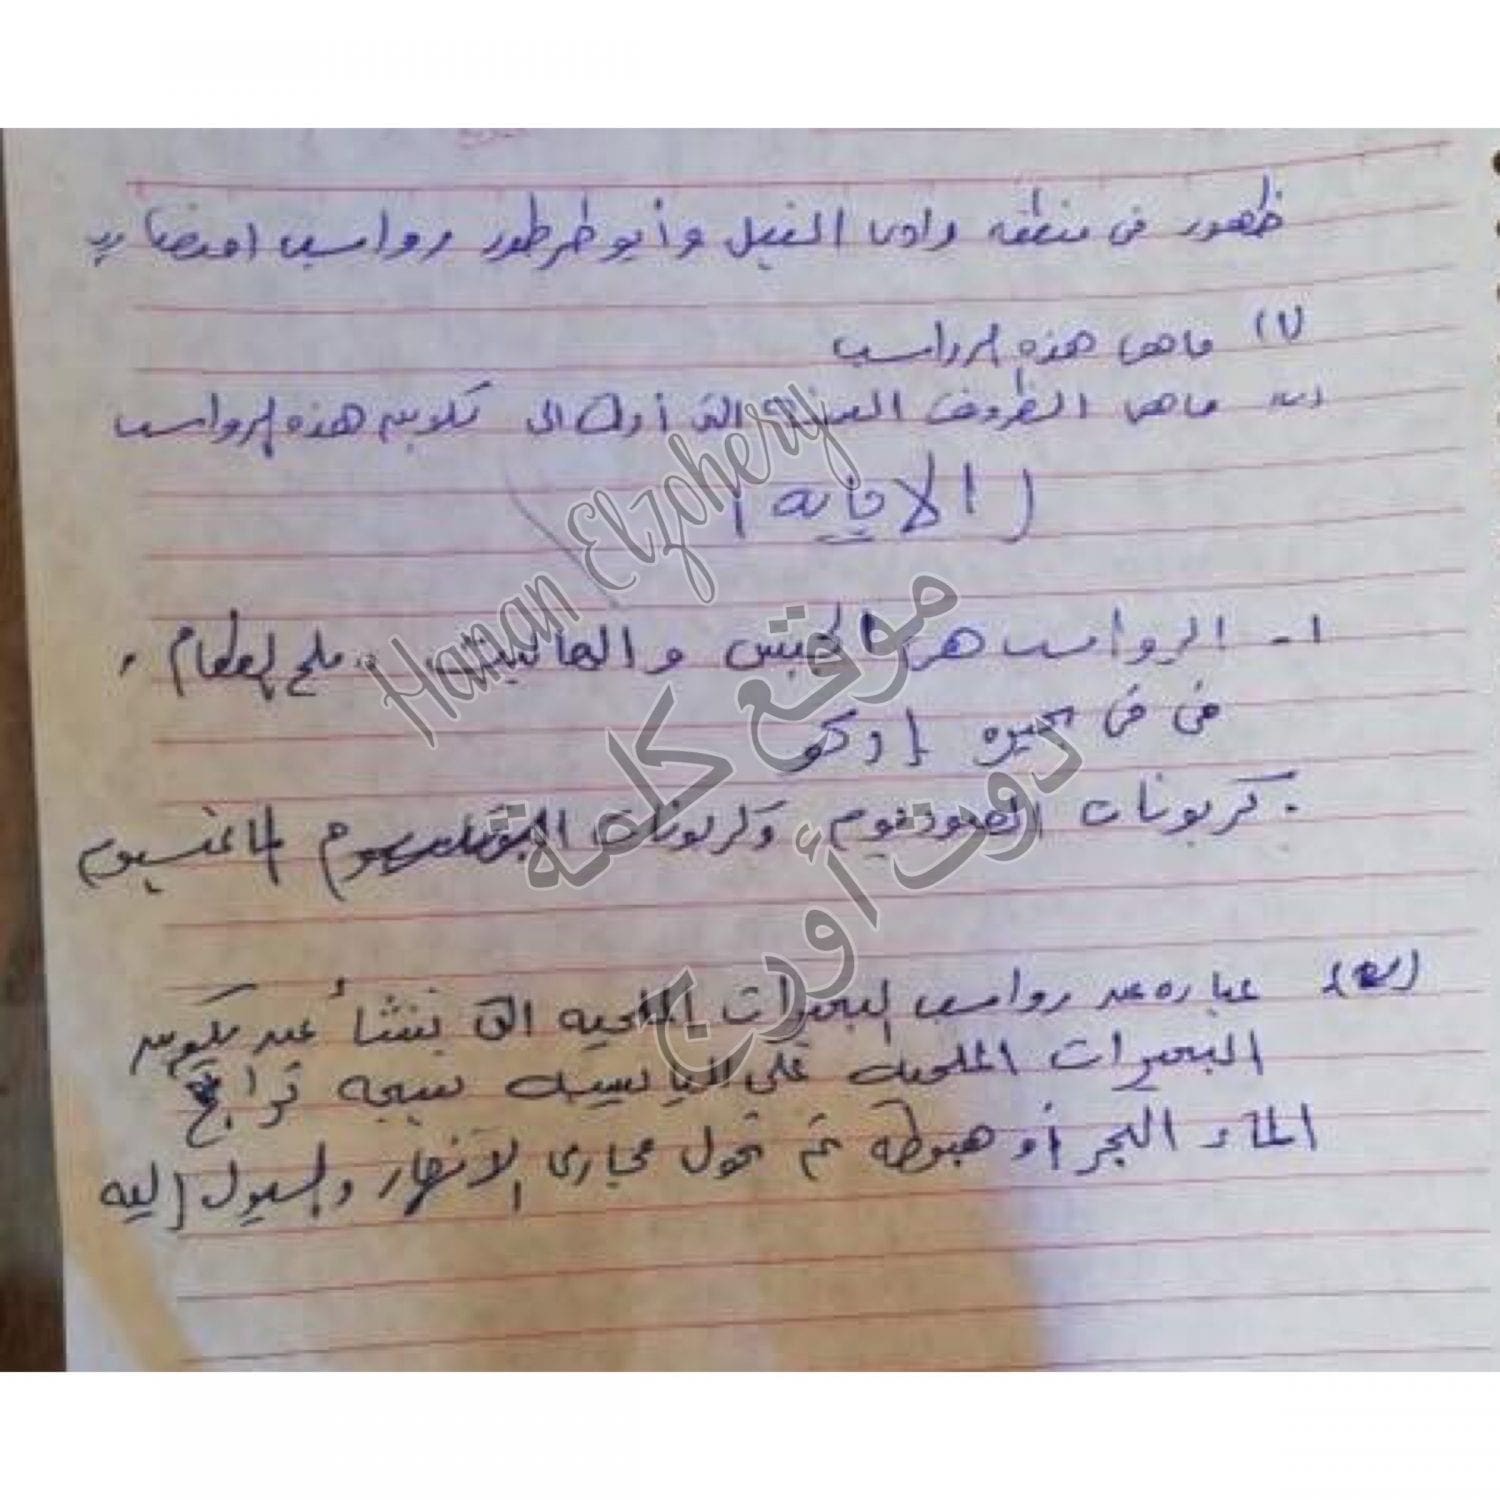 ظهور فى منطقه وادى النيل وأبو طرطور رواسب اقتصاديه
(١) ماهى هذه الرواسب
ماهى الظروف التى أدت الى تكوين هذه الرواسب
(الاجابه)
١- الرواسب هى الجبس والهاليت ملح الطعام
فى فى بحيره ادكو
كربونات الصوديوم وكربونات الماغنسيوم
عباره عن رواسب البحيرات الملحيه التى تنشأ عند تكون
البحيرات الملحيه على اليابسه نتيجه تراجع
الماء البحر أو هبوطه ثم تحول مجارى الأنهار والسيول إليه
Hanan Elzohery
موقع كلمة
دوت أورج